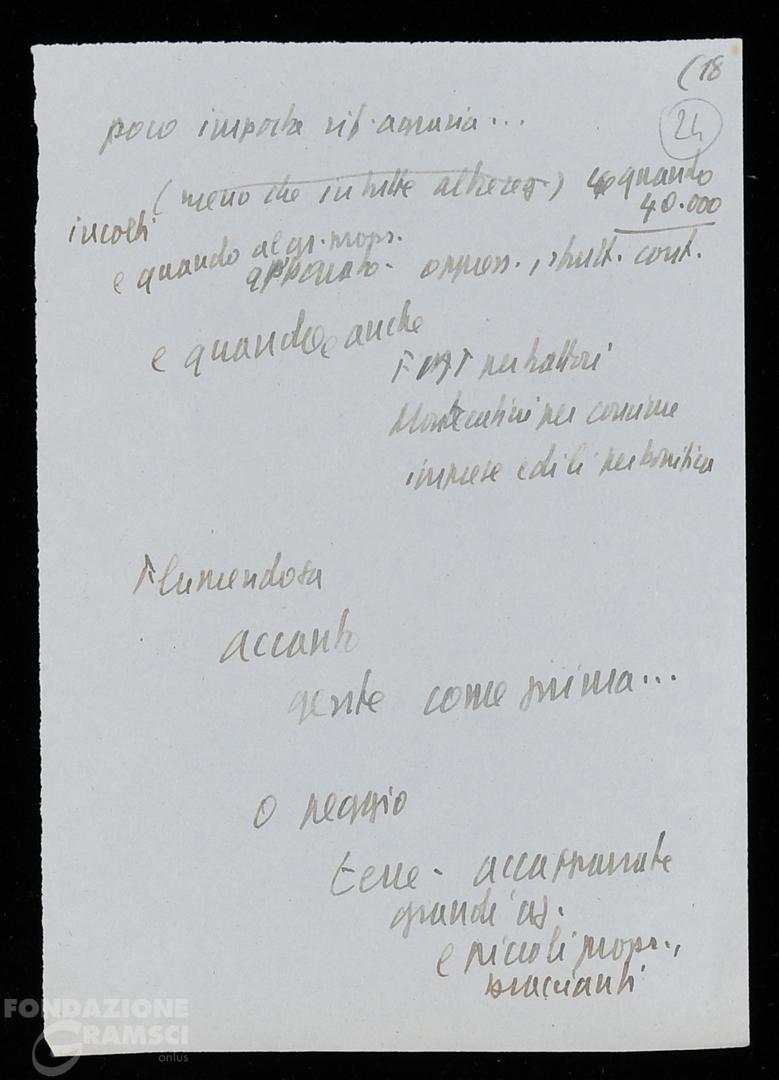 (18
24
poco importa rif. agraria...
(meno che in tutte altre reg.) quando
incolti 40.000
e quando al gr. propr.
appoggiato - oppress., sfrutt. cont.
e quando e anche
FIAT per trattori
Montecatini per concime
imprese edili per bonifica
Flumendosa
accanto
gente come prima...
o peggio
terre - accaparrate
grandi az.
e piccoli propr.,
braccianti
FONDAZIONE
GRAMSCI
onlus